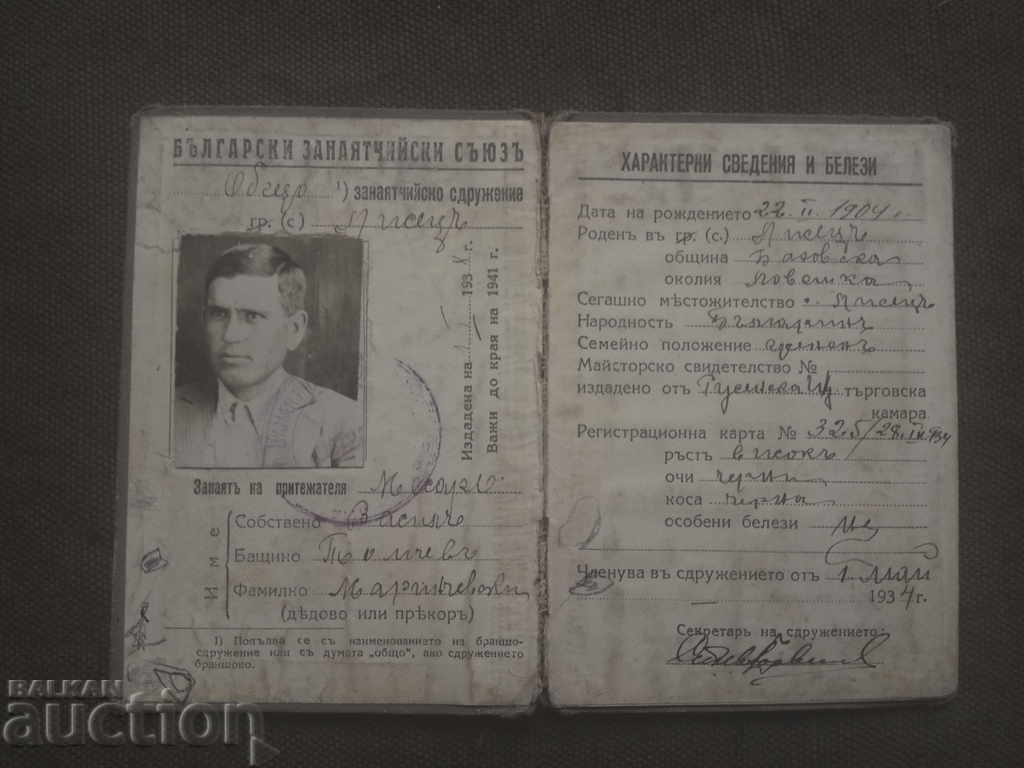 БЪЛГАРСКИ ЗАНАЯТЧИЙСКИ СЪЮЗЪ
Общо ¹) занаятчийско сдружение
гр. (с)
Издадена на 193 г.
Важи до края на 1941 г.
Занаятъ на притежателя
Име
Собствено Василъ
Бащино Томчевъ
Фамилно
(дѣдово или прѣкоръ)
1) Попълва се съ наименованието на браншо-
сдружение или съ думата „общо“, ако сдружението е
браншово.
ХАРАКТЕРНИ СВЕДЕНИЯ И БЕЛЕЗИ
Дата на рождението 22. II. 1904
Роденъ въ гр. (с.)
община
околия Ловешка
Сегашно мѣстожителство с.
Народность Българинъ
Семейно положение жененъ
Майсторско свидетелство №
издадено отъ търговска
камара
Регистрационна карта № 325/28.
ръстъ високъ
очи черни
коса черна
особени белези не
Членува въ сдружението отъ 1 май
1934 г.
Секретарь на сдружението:
BALKAN
auction